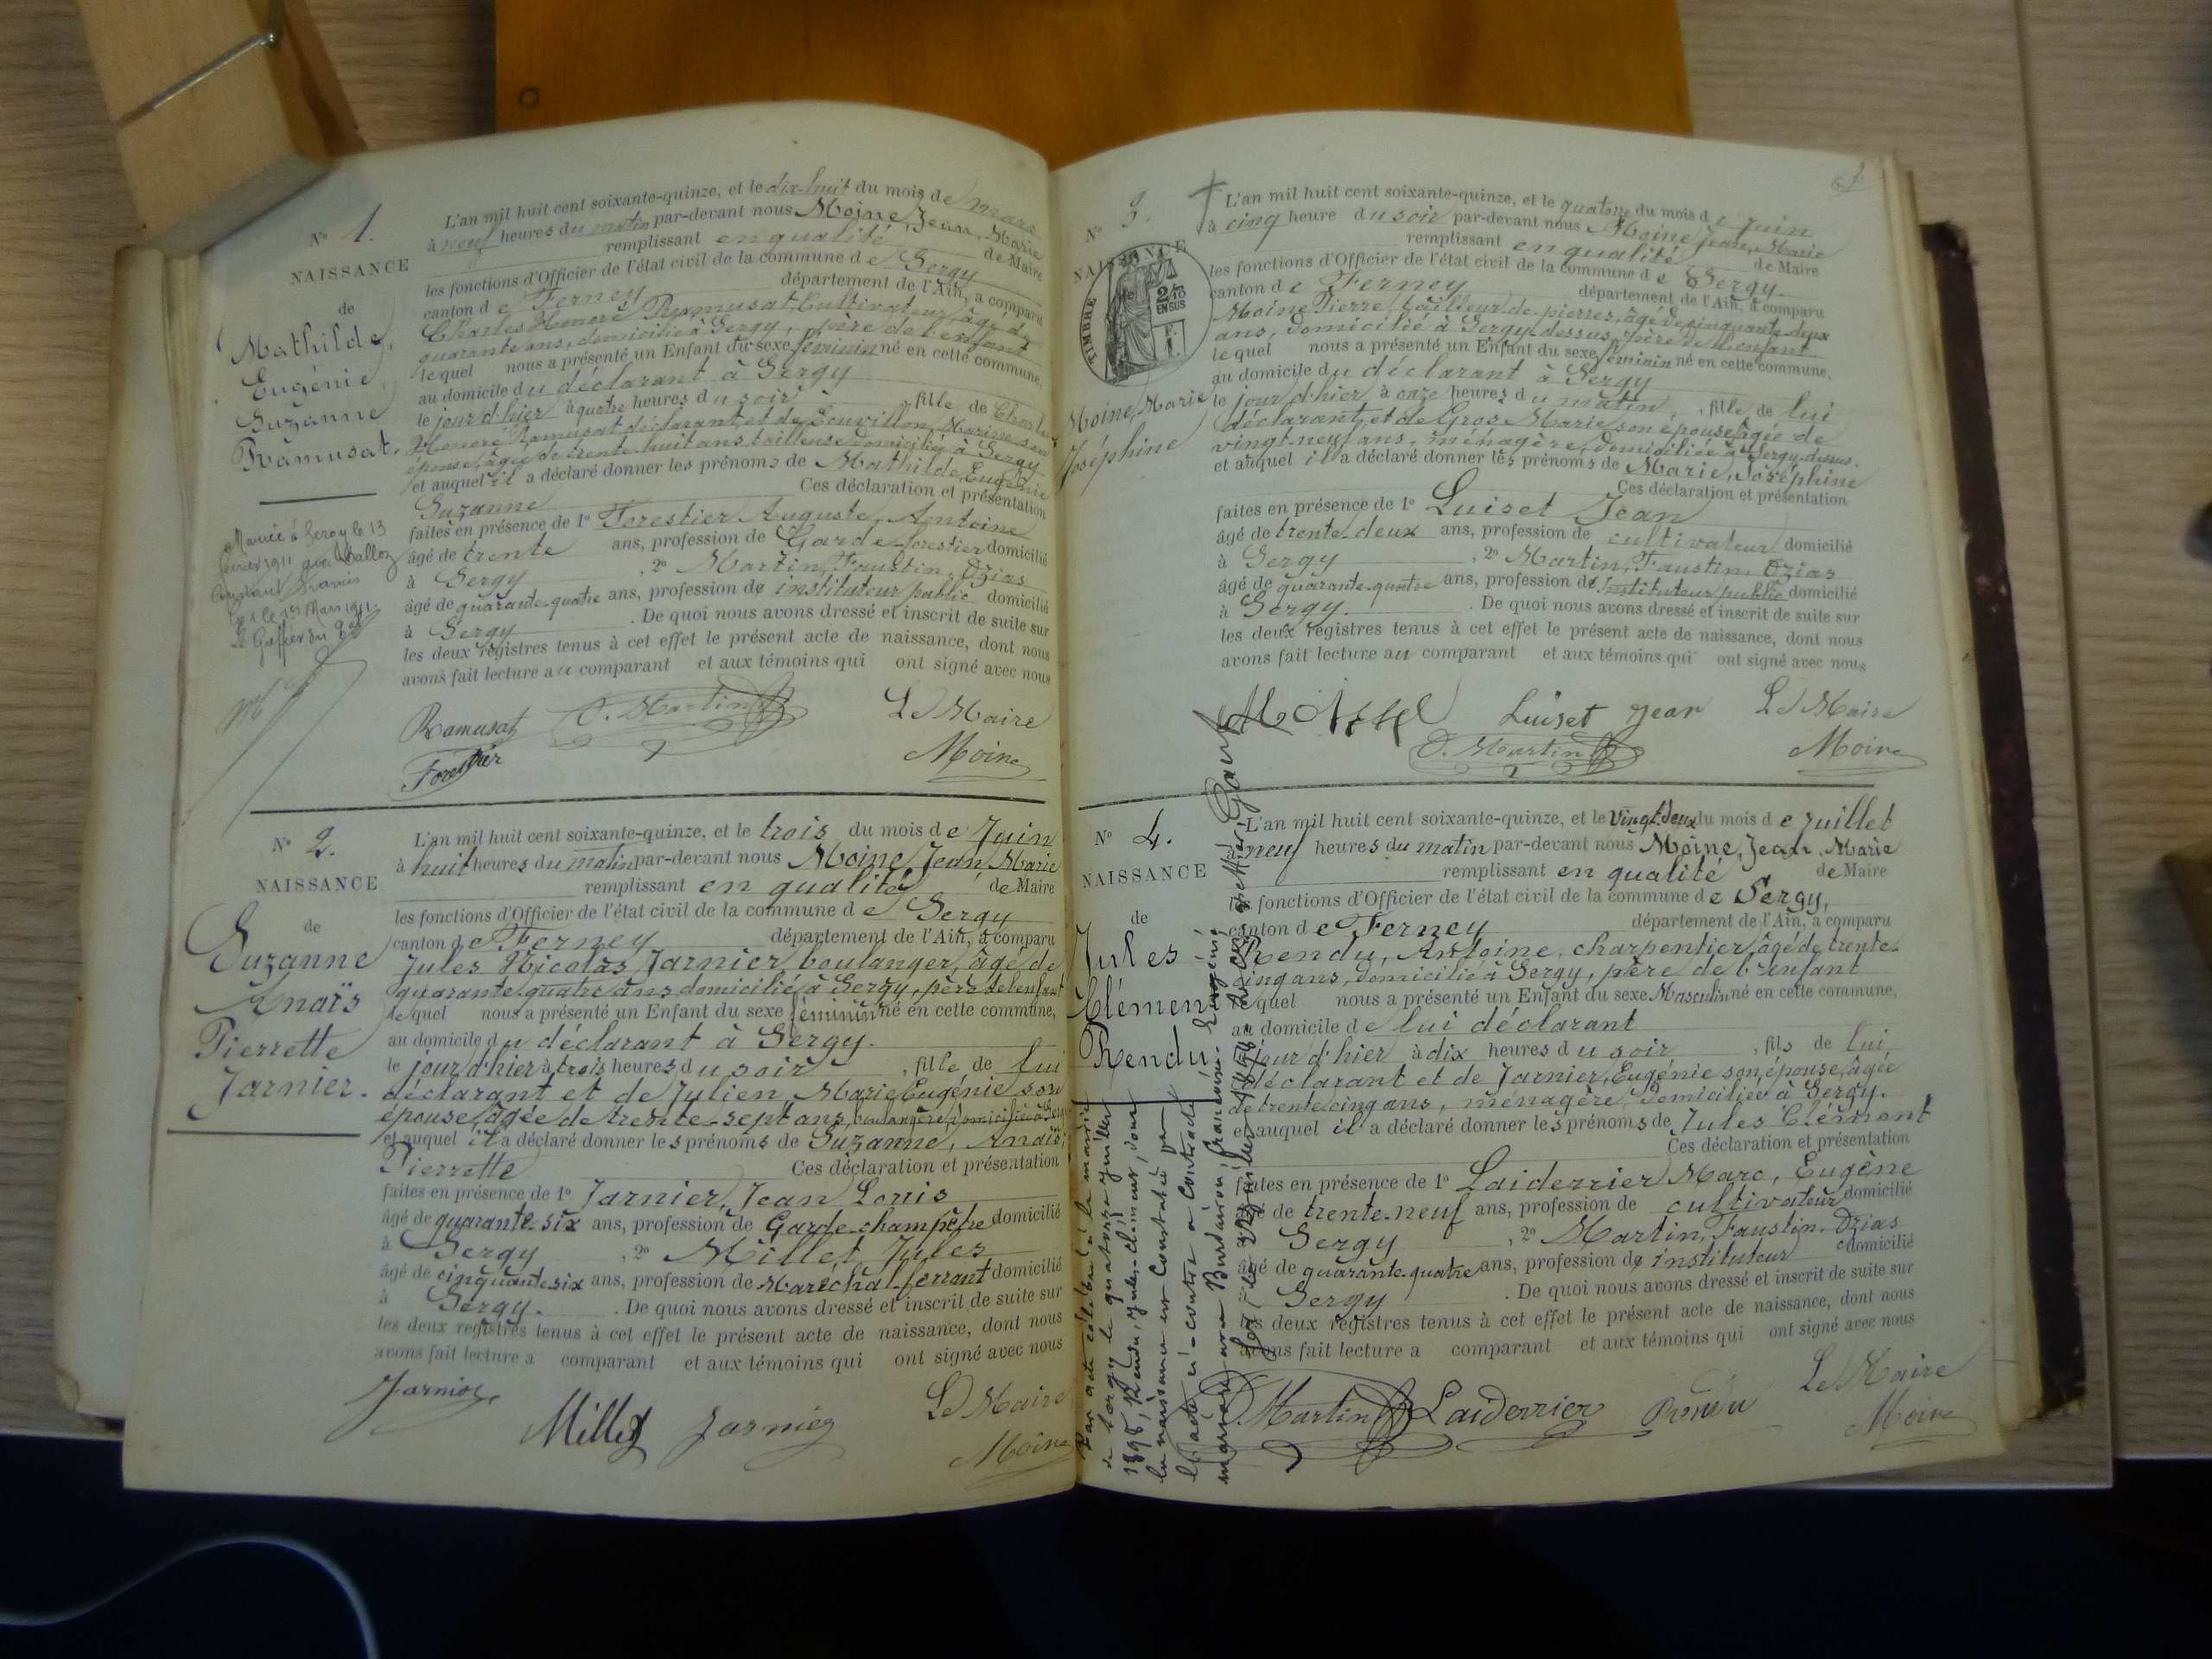 N° 1.
NAISSANCE
de
Mathilde,
Eugénie,
Suzanne
Ramusat.
Mariée à Sergy le 13
février 1911 avec
L'an mil huit cent soixante-quinze, et le dix-huit du mois de mars
à neuf heures du matin par-devant nous Moine, Jean, Marie
remplissant en qualité de Maire
les fonctions d'Officier de l'état civil de la commune de Sergy
canton de Ferney département de l'Ain, a comparu
Charles Honoré Ramusat, Cultivateur, âgé de
quarante ans, domicilié à Sergy, père de l'enfant
lequel nous a présenté un Enfant du sexe féminin né en cette commune,
au domicile du déclarant à Sergy
le jour d'hier à quatre heures du soir, fille de Charles
Honoré Ramusat déclarant, et de Bouvillon, Marie son
épouse, âgée de trente-huit ans, tailleuse domiciliée à Sergy
et auquel il a déclaré donner les prénoms de Mathilde, Eugénie
Suzanne Ces déclaration et présentation
faites en présence de 1° Forestier Auguste, Antoine
âgé de trente ans, profession de Garde-forestier domicilié
à Sergy, 2° Martin, Faustin, Ozias
âgé de quarante-quatre ans, profession de instituteur public domicilié
à Sergy. De quoi nous avons dressé et inscrit de suite sur
les deux registres tenus à cet effet le présent acte de naissance, dont nous
avons fait lecture au comparant et aux témoins qui ont signé avec nous
Ramusat O. Martin Le Maire
Forestier Moine
N° 2.
NAISSANCE
de
Suzanne
Anaïs
Pierrette
Jarnier.
L'an mil huit cent soixante-quinze, et le trois du mois de Juin
à huit heures du matin par-devant nous Moine, Jean, Marie
remplissant en qualité de Maire
les fonctions d'Officier de l'état civil de la commune de Sergy
canton de Ferney département de l'Ain, a comparu
Jules Nicolas Jarnier boulanger, âgé de
quarante-quatre ans domicilié à Sergy, père de l'enfant
lequel nous a présenté un Enfant du sexe féminin né en cette commune,
au domicile du déclarant à Sergy.
le jour d'hier à trois heures du soir, fille de lui
déclarant et de Julien, Marie Eugénie son
épouse, âgée de trente-sept ans, boulangère, domiciliée à Sergy
et auquel il a déclaré donner les prénoms de Suzanne, Anaïs,
Pierrette Ces déclaration et présentation
faites en présence de 1° Jarnier, Jean Louis
âgé de quarante-six ans, profession de Garde-champêtre domicilié
à Sergy, 2° Millet Jules
âgé de cinquante-six ans, profession de Maréchal-ferrant domicilié
à Sergy. De quoi nous avons dressé et inscrit de suite sur
les deux registres tenus à cet effet le présent acte de naissance, dont nous
avons fait lecture a comparant et aux témoins qui ont signé avec nous
Jarnier Millet Jarnier Le Maire
Moine
N° 3.
NAISSANCE
TIMBRE
Moine, Marie
Joséphine
L'an mil huit cent soixante-quinze, et le quatorze du mois de Juin
à cinq heure du soir par-devant nous Moine Jean, Marie
remplissant en qualité de Maire
les fonctions d'Officier de l'état civil de la commune de Sergy
canton de Ferney département de l'Ain, a comparu
Moine Pierre, tailleur de pierres, âgé de cinquante-deux
ans, domicilié à Sergy-dessus, père de l'enfant
lequel nous a présenté un Enfant du sexe féminin né en cette commune,
au domicile du déclarant à Sergy
le jour d'hier à onze heures du matin, fille de lui
déclarant, et de Gros Marie son épouse, âgée de
vingt-neuf ans, ménagère, domiciliée à Sergy-dessus.
et auquel il a déclaré donner les prénoms de Marie, Joséphine
Ces déclaration et présentation
faites en présence de 1° Luiset Jean
âgé de trente-deux ans, profession de cultivateur domicilié
à Sergy, 2° Martin, Faustin, Ozias
âgé de quarante-quatre ans, profession de instituteur public domicilié
à Sergy. De quoi nous avons dressé et inscrit de suite sur
les deux registres tenus à cet effet le présent acte de naissance, dont nous
avons fait lecture au comparant et aux témoins qui ont signé avec nous
Moine Luiset Jean Le Maire
O. Martin Moine
N° 4.
NAISSANCE
de
Jules
Clément
Rendu
Par acte célébré à la mairie
de Sergy le quatorze juillet
1898, Rendu, Jules-Clément, dont
la naissance est constatée par
l'acte ci-contre a contracté
mariage avec Burdairon françoise-Eugénie
L'an mil huit cent soixante-quinze, et le vingt-deux du mois de Juillet
neuf heures du matin par-devant nous Moine, Jean, Marie
remplissant en qualité de Maire
les fonctions d'Officier de l'état civil de la commune de Sergy,
canton de Ferney département de l'Ain, a comparu
Rendu, Antoine, charpentier, âgé de trente-
cinq ans, domicilié à Sergy, père de l'enfant
lequel nous a présenté un Enfant du sexe Masculin né en cette commune,
au domicile de lui déclarant
le jour d'hier à dix heures du soir, fils de lui,
déclarant et de Jarnier, Eugénie son épouse, âgée
de trente cinq ans, ménagère domiciliée à Sergy.
et auquel il a déclaré donner les prénoms de Jules Clément
Ces déclaration et présentation
faites en présence de 1° Laiderrier Marc, Eugène
âgé de trente-neuf ans, profession de cultivateur domicilié
Sergy, 2° Martin, Faustin, Ozias
âgé de quarante-quatre ans, profession de instituteur domicilié
Sergy. De quoi nous avons dressé et inscrit de suite sur
les deux registres tenus à cet effet le présent acte de naissance, dont nous
avons fait lecture a comparant et aux témoins qui ont signé avec nous
Martin Laiderrier Rendu Le Maire
Moine